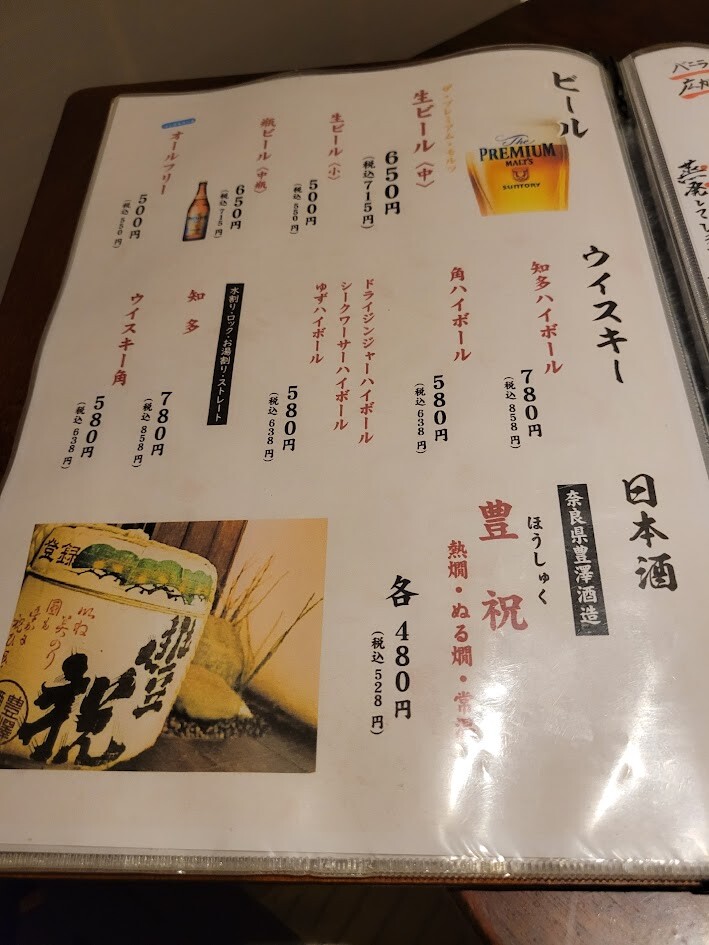 ビール
The
PREMIUM
MALT'S
SUNTORY
ザ・プレミアム・モルツ
生ビール〈中〉
650円
(税込715円)
生ビール〈小〉
500円
(税込550円)
瓶ビール〈中瓶〉
650円
(税込715円)
オールフリー
500円
(税込550円)
ウイスキー
知多ハイボール
780円
(税込858円)
角ハイボール
580円
(税込638円)
ドライジンジャーハイボール
シークワーサーハイボール
ゆずハイボール
580円
(税込638円)
水割り・ロック・お湯割り・ストレート
知多
780円
(税込858円)
ウイスキー角
580円
(税込638円)
日本酒
奈良県豊澤酒造
ほうしゅく
豊祝
熱燗・ぬる燗・常温
各480円
(税込528円)
登録
豊祝
豊澤
バニラ